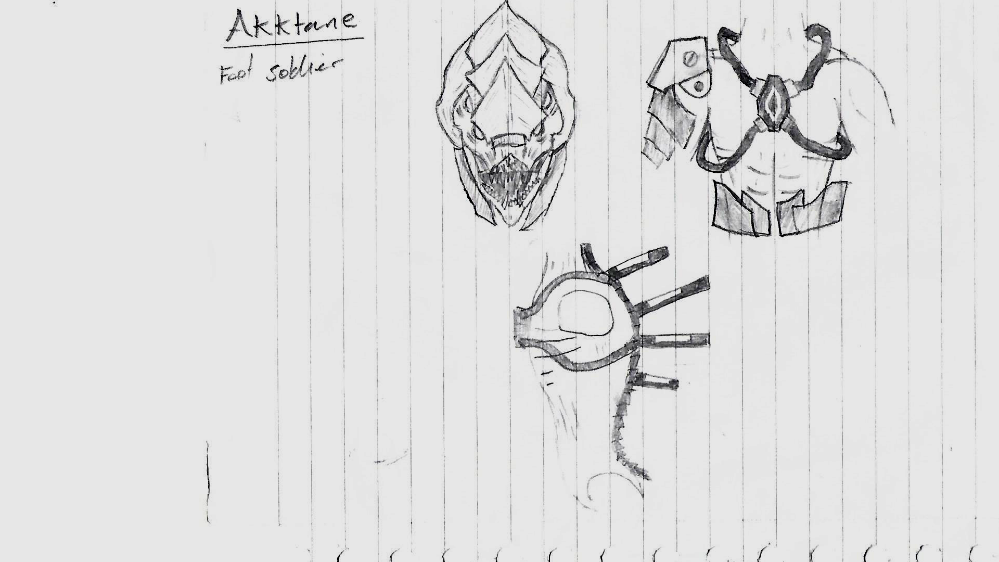 Akktane
Foot soldier